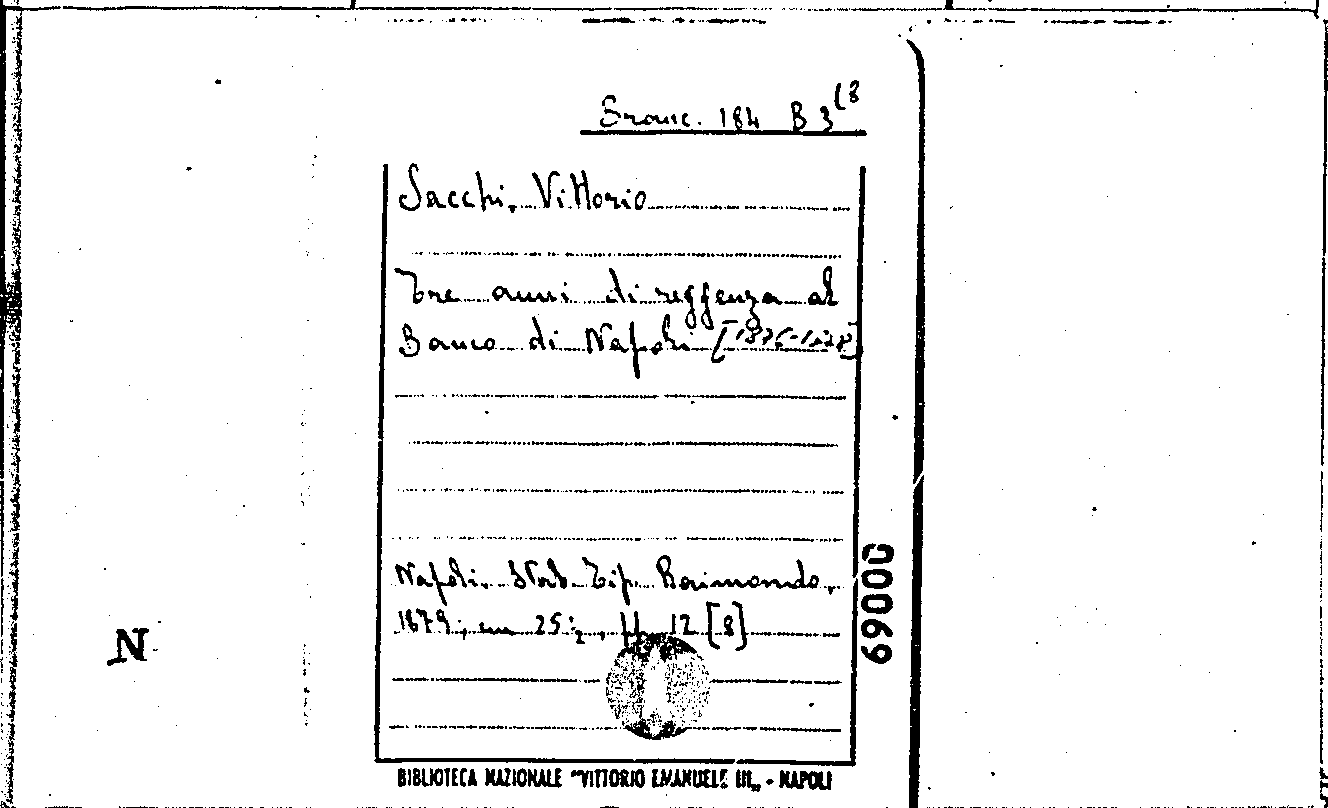 Branc. 184 B 3 (8
Sacchi, Vittorio
Tre anni di reggenza al
Banco di Napoli [1876-1878]
Napoli. Stab. Tip. Raimondo,
1879; cm 25½, pp. 12 [8]
69000
N
BIBLIOTECA NAZIONALE "VITTORIO EMANUELE III„ - NAPOLI